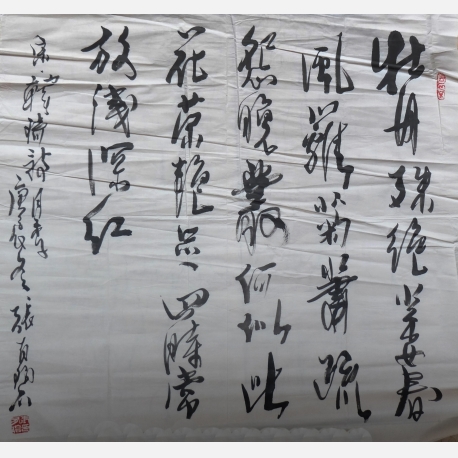 牡丹殊绝委春
風籬菊蕭疏
怨晚叢何似此
花荣艳足四時常
放浅深红
宋韓琦詩月季